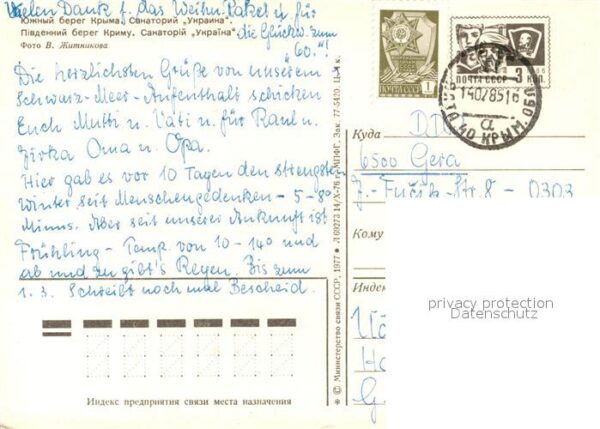 Vielen Dank f. das Weihn. Paket u. für
die Glückw. zum
"60."!
Южный берег Крыма. Санаторий „Украина".
Південний берег Криму. Санаторій „Україна".
Фото В. Житникова
Die herzlichsten Grüße von unserem
Schwarz-Meer-Aufenthalt schicken
Euch Mutti u. Vati u. für Raul u.
Jirka Oma u. Opa.
Hier gab es vor 10 Tagen den strengsten
Winter seit Menschengedenken - 5-8°
Minus. Aber seit unserer Ankunft ist
Frühling - Temp. von 10-14° und
ab und zu gibt's Regen. Bis zum
1. 3. Schreibt noch mal Bescheid.
Индекс предприятия связи места назначения
© Министерство связи СССР, 1977
Зак. 77-5410. Ц. 4 к.
ПОЧТА СССР 1
ПОЧТА СССР
КОП.
14028516
КРЫМ. ОБЛ
Куда
DDR
6500 Gera
J.-Fučik-Str. 8 - 0303
Кому
Индекс
privacy protection
Datenschutz